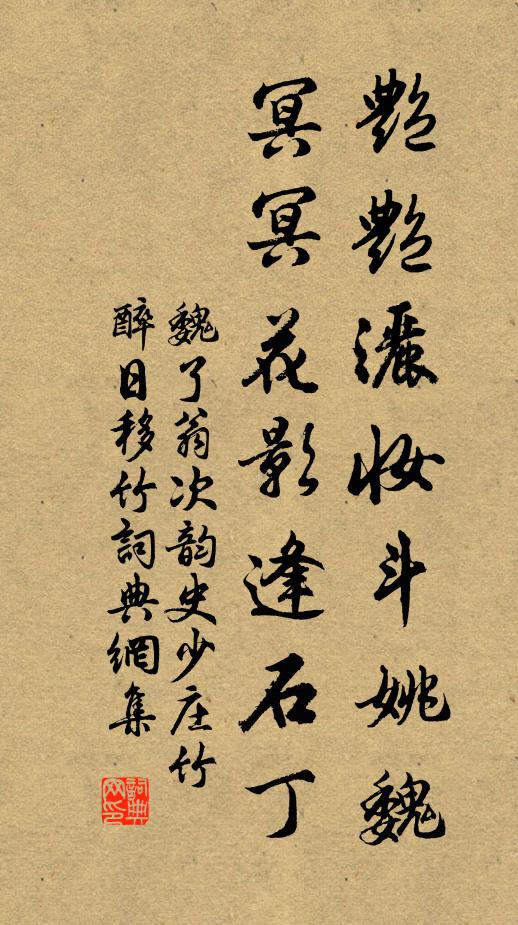 艷艷濃妝斗姚魏
冥冥花影逢石丁
魏了翁次韵史少庄竹
醉日移竹詞典網集
詞典网印